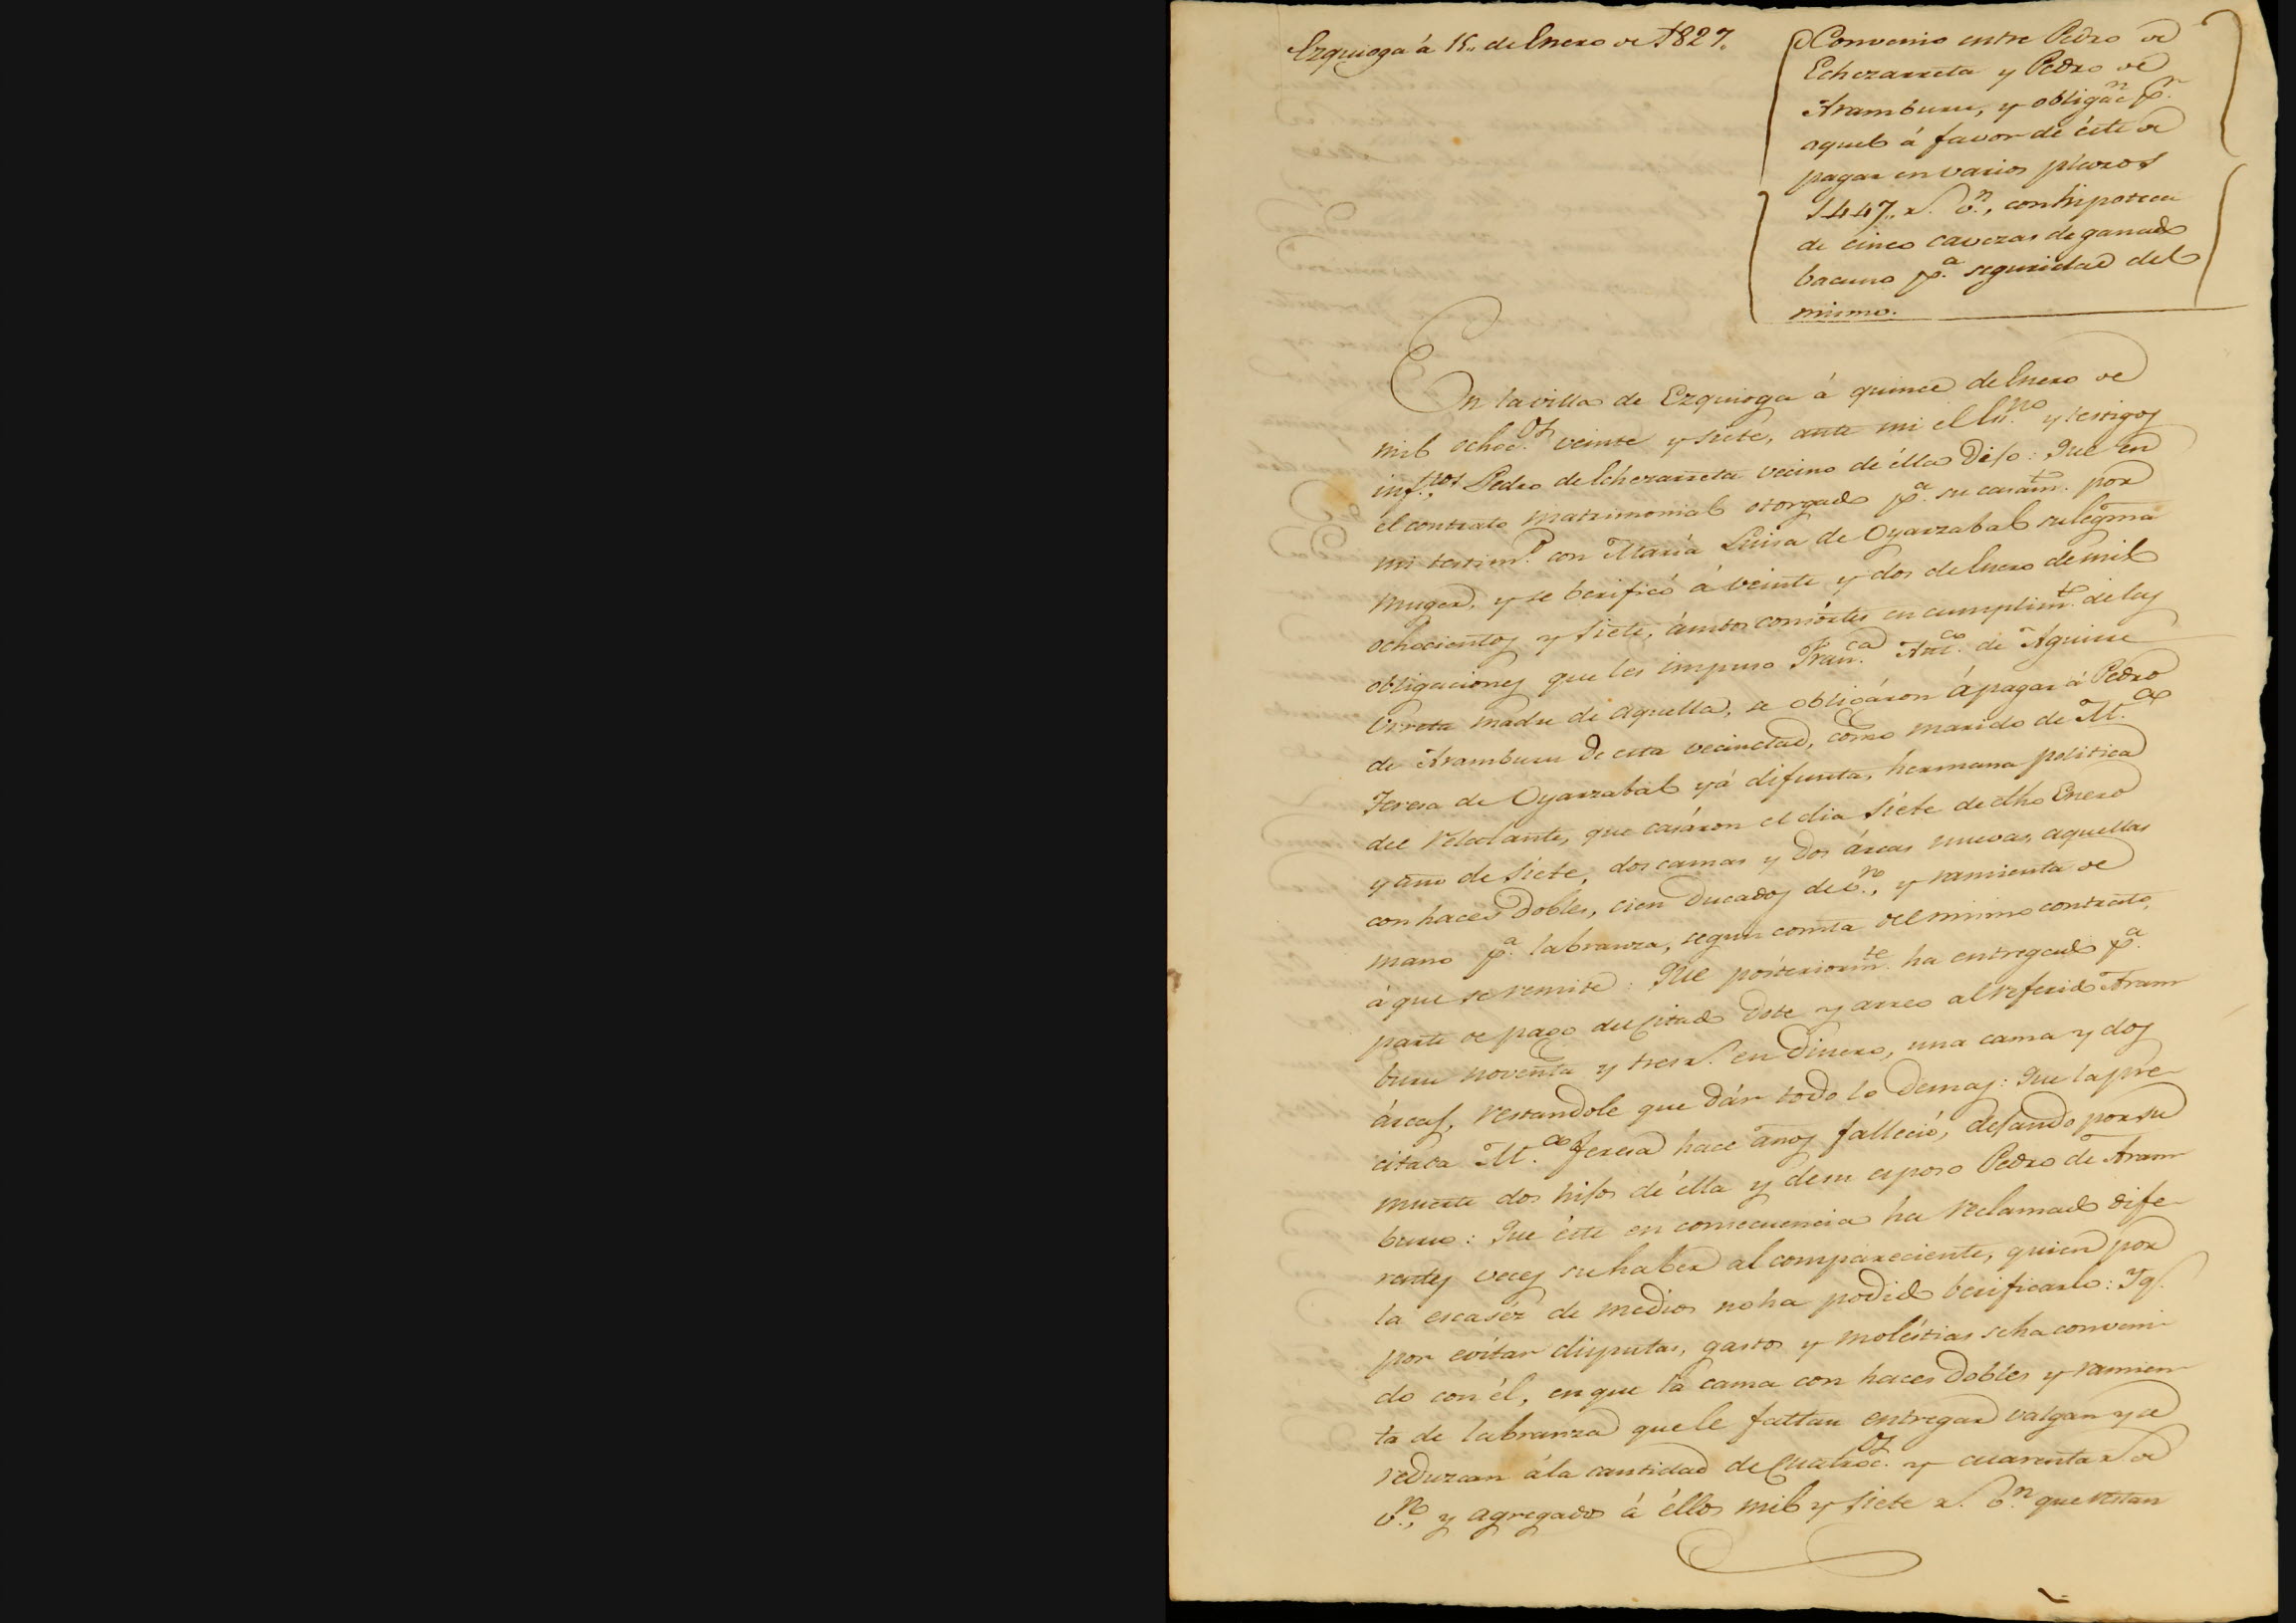 Ezquioga á 15,, de Enero de 1827.
Convenio entre Pedro de
Echezarreta y Pedro de
Aramburu, y obligac.n p.r
aquel á favor de éste de
pagar en varios plazos
1447,, r.s v.n, con hipoteca
de cinco cavezas de ganado
bacuno p.a seguridad del
mismo.
En la villa de Ezquioga á quince de Enero de
mil ochoc.os veinte y siete, ante mi el Es.no y testigos
inf.tos Pedro de Echezarreta vecino de élla Dijo: Que en
el contrato matrimonial otorgado p.a su casam.to por
mi testim.o con Maria Luisa de Oyarzabal su legma
muger, y se berificó á veinte y dos de Enero de mil
ochocientos y siete, ámbos consórtes en cumplim.to de las
obligaciones que les impuso Fran.ca Ant.a de Aguirre
Urreta madre de aquella, se obligáron á pagar á Pedro
de Aramburu de esta vecindad, como marido de M.a
Teresa de Oyarzabal yá difunta, hermana politica
del relatante, que casáron el dia siete de dho Enero
y año de siete, dos camas y dos árcas nuevas, aquellas
con haces dobles, cien Ducados de v.n, y ramienta de
mano p.a labranza, segun consta del mismo contrato,
á que se remite: Que posteriorm.te ha entregado p.a
parte de pago del citado Dote y arreo al referido Aram-
buru noventa y tres r.s en Dinero, una cama y dos
árcas, restandole que dár todo lo demas: Que la pre-
citada M.a Teresa hace años falleció, dejando por su
muerte dos hijos de élla y de su esposo Pedro de Aram-
buru: Que éste en consecuencia ha reclamado dife-
rentes veces su haber al compareciente, quien por
la escaséz de medios no ha podido berificarlo: Y q.e
por evitar disputas, gastos y moléstias se ha conveni-
do con él, en que la cama con haces Dobles y ramien-
ta de labranza que le faltan entregar valgan y se
reduzcan á la cantidad de cuatroc.os y cuarenta r.s de
v.n, y agregados á éllos mil y siete r.s v.n que restan